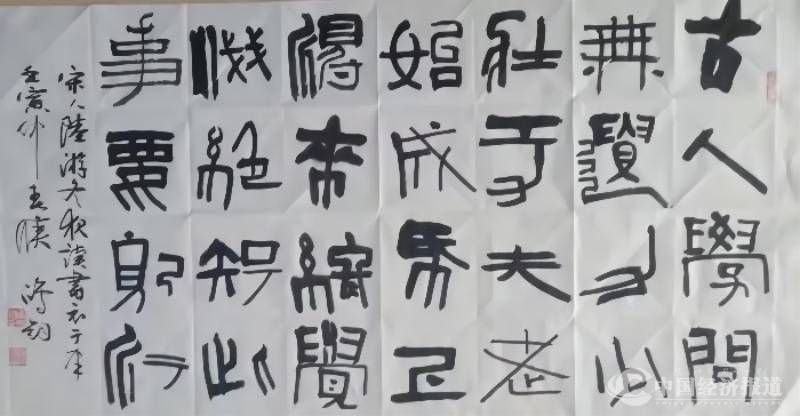 古人學問
無遺力少
壯工夫老
始成紙上
得來終覺
淺絕知此
事要躬行
宋人陸游冬夜讀書示子聿
壬寅仲春
中国经济报道